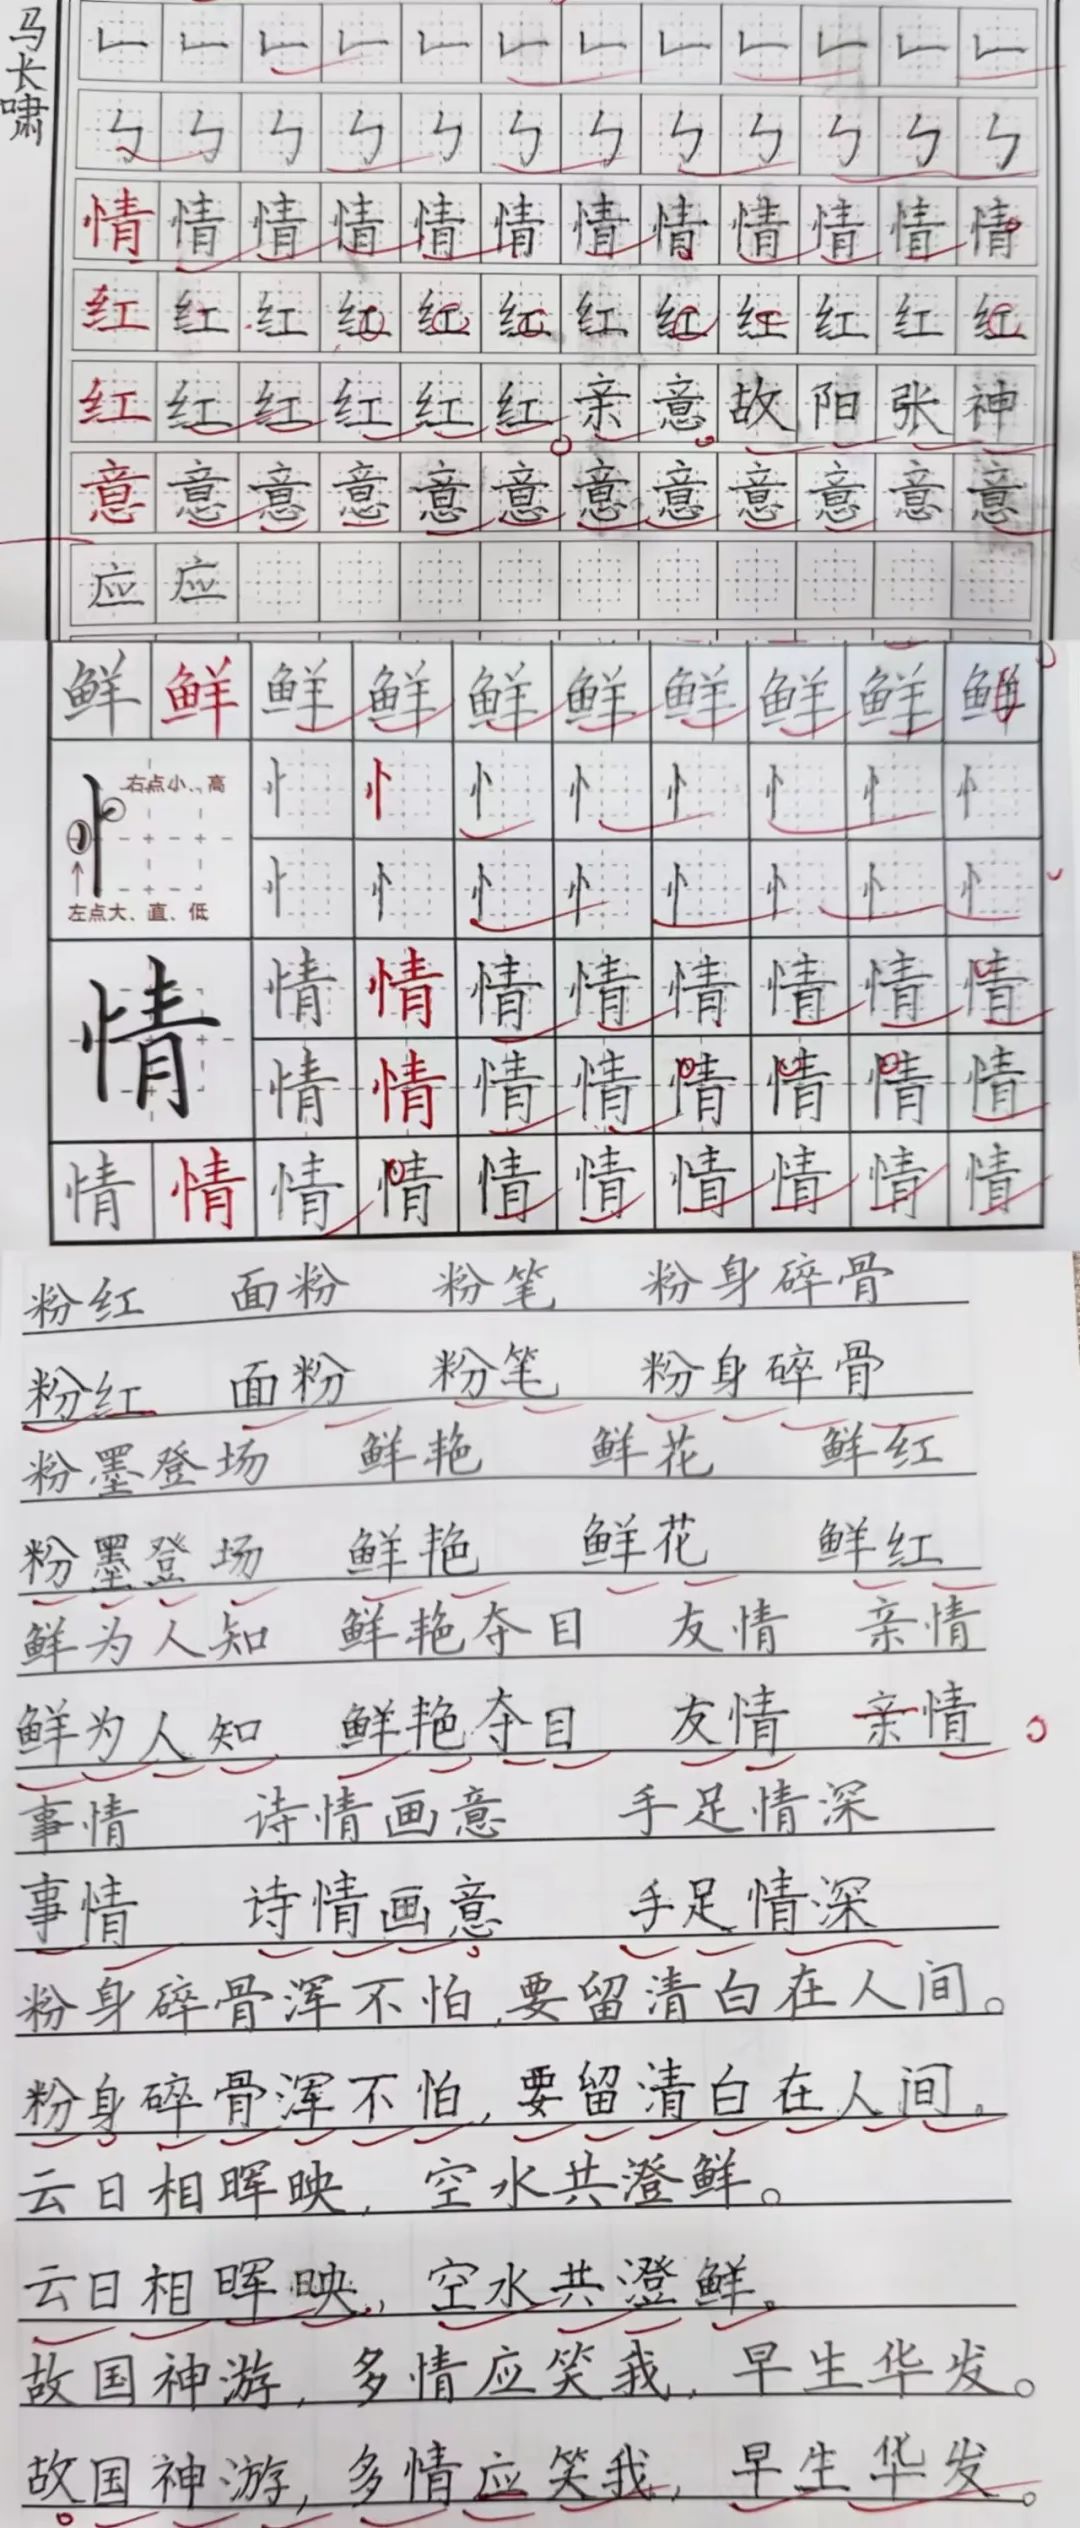 马长啸
𠂉 𠂉 𠂉 𠂉 𠂉 𠂉 𠂉 𠂉 𠂉 𠂉 𠂉 𠂉
情 情 情 情 情 情 情 情 情 情 情 情
红 红 红 红 红 红 红 红 红 红 红 红
红 红 红 红 红 红 亲 意 故 阳 张 神
意 意 意 意 意 意 意 意 意 意 意 意
应 应
鲜 鲜 鲜 鲜 鲜 鲜 鲜 鲜 鲜 鲜
右点小、高
忄 忄 忄 忄 忄 忄 忄 忄
忄 忄 忄 忄 忄 忄 忄 忄
左点大、直、低
情
情 情 情 情 情 情 情 情
情 情 情 情 情 情 情 情
情 情 情 情 情 情 情 情 情 情
粉红 面粉 粉笔 粉身碎骨
粉红 面粉 粉笔 粉身碎骨
粉墨登场 鲜艳 鲜花 鲜红
粉墨登场 鲜艳 鲜花 鲜红
鲜为人知 鲜艳夺目 友情 亲情
鲜为人知 鲜艳夺目 友情 亲情
事情 诗情画意 手足情深
事情 诗情画意 手足情深
粉身碎骨浑不怕,要留清白在人间。
粉身碎骨浑不怕,要留清白在人间。
云日相晖映,空水共澄鲜。
云日相晖映,空水共澄鲜。
故国神游,多情应笑我,早生华发。
故国神游,多情应笑我,早生华发。